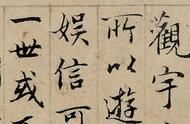 觀宇
所以遊
娱信可
一世或